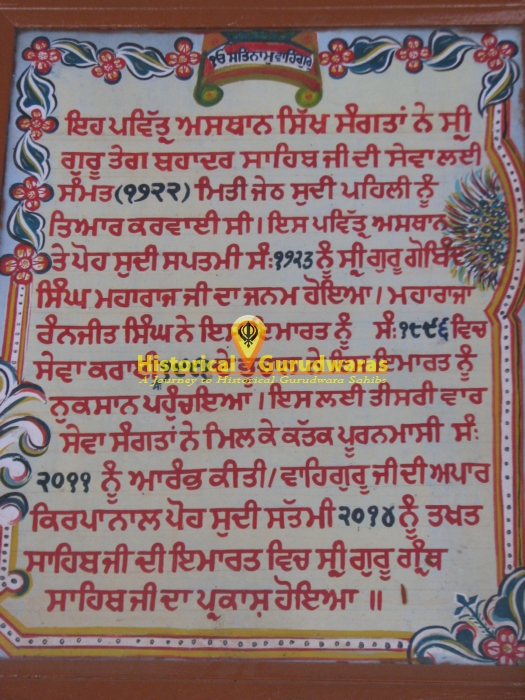 ੴ ਸਤਿਨਾਮੁ ਵਾਹਿਗੁਰੂ
ਇਹ ਪਵਿੱਤ੍ਰ ਅਸਥਾਨ ਸਿੱਖ ਸੰਗਤਾਂ ਨੇ ਸ੍ਰੀ
ਗੁਰੂ ਤੇਗ ਬਹਾਦਰ ਸਾਹਿਬ ਜੀ ਦੀ ਸੇਵਾ ਲਈ
ਸੰਮਤ (੧੭੨੨) ਮਿਤੀ ਜੇਠ ਸੁਦੀ ਪਹਿਲੀ ਨੂੰ
ਤਿਆਰ ਕਰਵਾਈ ਸੀ। ਇਸ ਪਵਿੱਤ੍ਰ ਅਸਥਾਨ
ਤੇ ਪੋਹ ਸੁਦੀ ਸਪਤਮੀ ਸੰ: ੧੭੨੩ ਨੂੰ ਸ੍ਰੀ ਗੁਰੂ ਗੋਬਿੰਦ
ਸਿੰਘ ਮਹਾਰਾਜ ਜੀ ਦਾ ਜਨਮ ਹੋਇਆ। ਮਹਾਰਾਜਾ
ਰੰਨਜੀਤ ਸਿੰਘ ਨੇ ਇਸ ਇਮਾਰਤ ਨੂੰ ਸੰ: ੧੮੯੬ ਵਿਚ
ਸੇਵਾ ਕਰਾਈ ਇਮਾਰਤ ਨੂੰ
Historical Gurudwaras
A Journey to Historical Gurudwara Sahibs
ਨੁਕਸਾਨ ਪਹੁੰਚਇਆ। ਇਸ ਲਈ ਤੀਸਰੀ ਵਾਰ
ਸੇਵਾ ਸੰਗਤਾਂ ਨੇ ਮਿਲ ਕੇ ਕੱਤਕ ਪੂਰਨਮਾਸੀ ਸੰ:
੨੦੧੧ ਨੂੰ ਆਰੰਭ ਕੀਤੀ/ਵਾਹਿਗੁਰੂ ਜੀ ਦੀ ਅਪਾਰ
ਕਿਰਪਾ ਨਾਲ ਪੋਹ ਸੁਦੀ ਸੱਤਮੀ ੨੦੧੪ ਨੂੰ ਤਖਤ
ਸਾਹਿਬ ਜੀ ਦੀ ਇਮਾਰਤ ਵਿਚ ਸ੍ਰੀ ਗੁਰੂ ਗ੍ਰੰਥ
ਸਾਹਿਬ ਜੀ ਦਾ ਪ੍ਰਕਾਸ਼ ਹੋਇਆ ॥